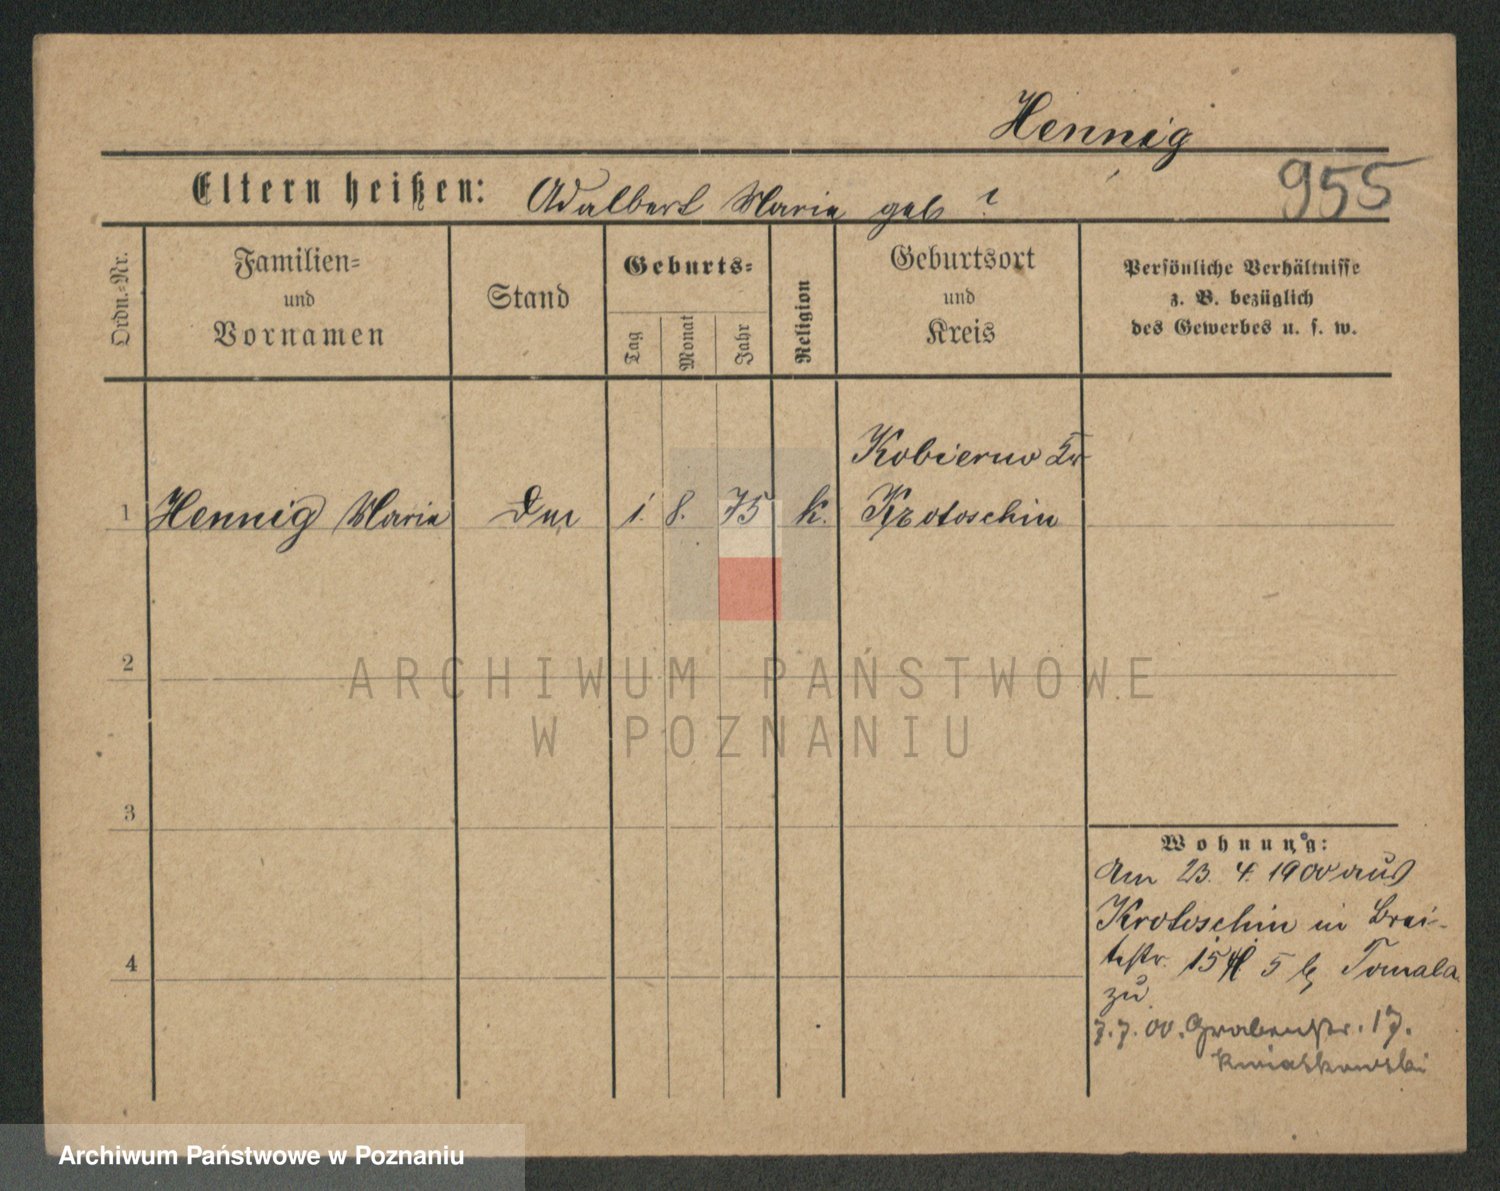 Hennig
955
Eltern heißen: Adalbert Maria geb ?
Ordn.-Nr.
Familien-
und
Vornamen
Stand
Geburts-
Tag
Monat
Jahr
Religion
Geburtsort
und
Kreis
Persönliche Verhältnisse
z. B. bezüglich
des Gewerbes u. s. w.
Kobierno Kr
1 Hennig Maria 1. 8. 75 k. Krotoschin
2
3
4
Wohnung:
Am 23. 4. 1900 aus
Krotoschin in Brei-
testr. 15 5 b Tomala
zu
7. 7. 00. Grabenstr. 17.
Kwiatkowski
ARCHIWUM PAŃSTWOWE
W POZNANIU
Archiwum Państwowe w Poznaniu